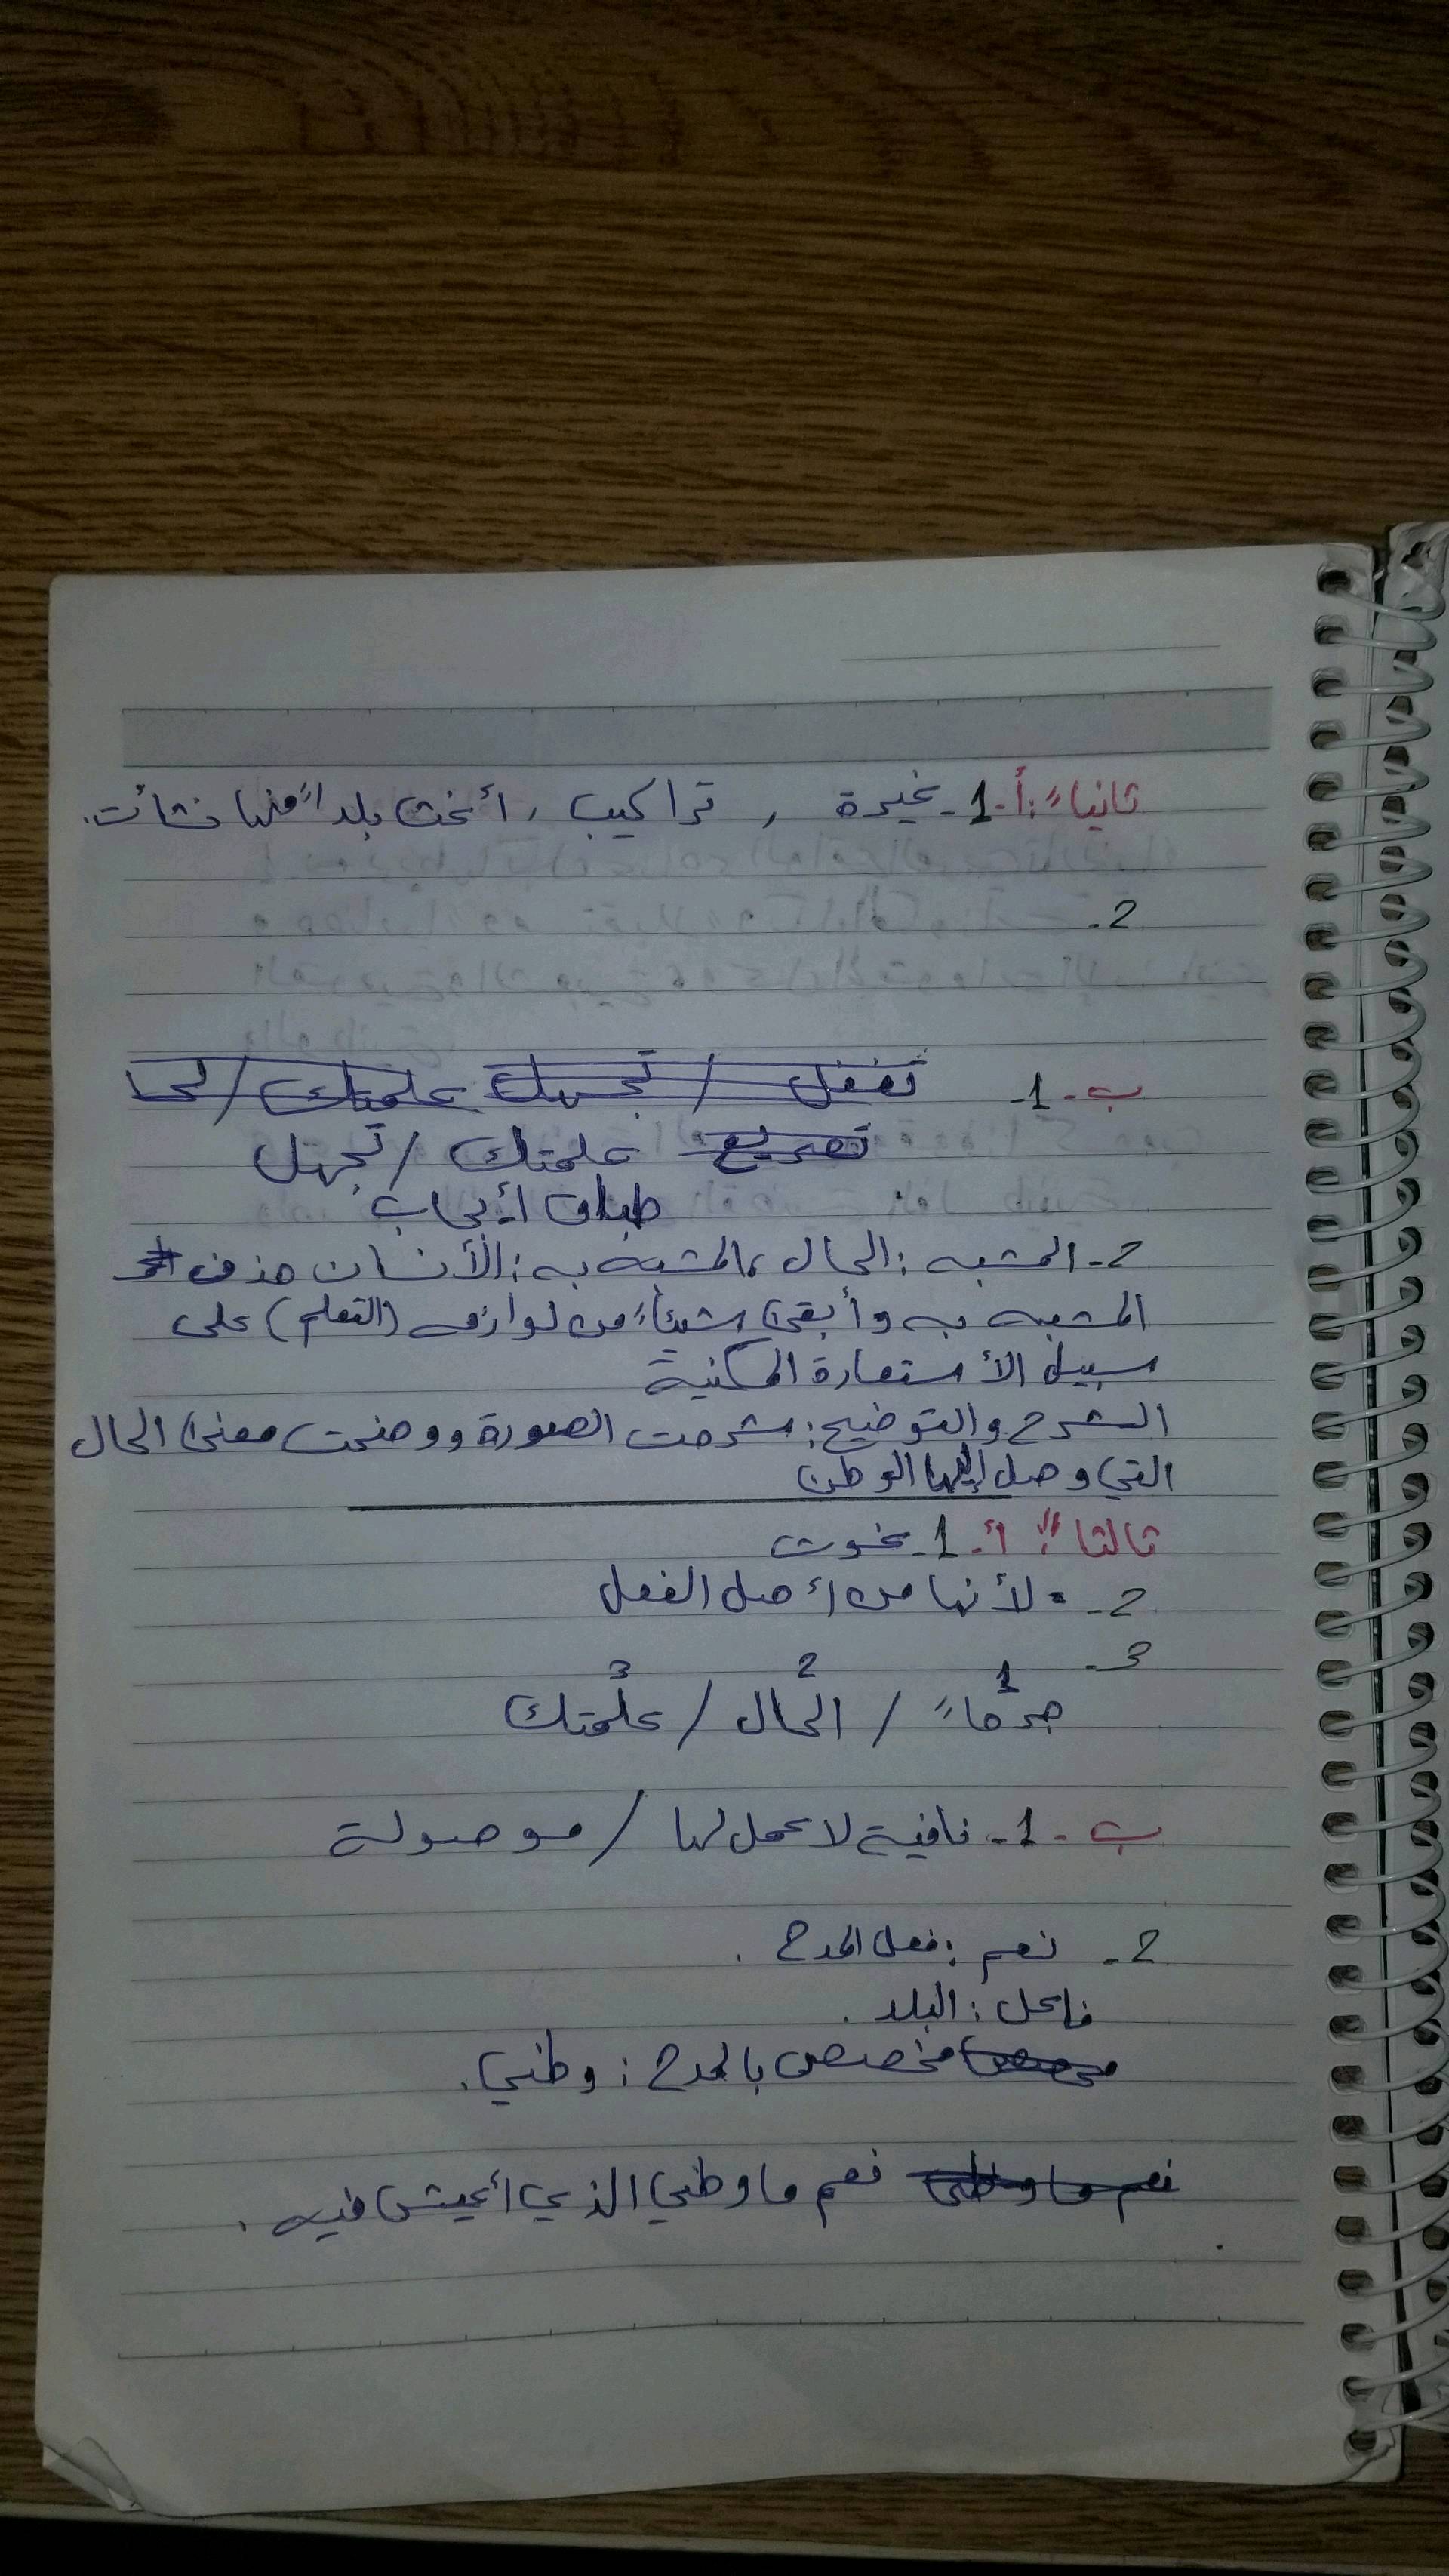 ثانياً: أ-1- غيرة , تراكيب , أنخت بلداً منها نشأت.
2-
ب-1- تغفل / تجهل علمتك / لحا
تصريع علمتك / تجهل
طباق أيجاب
2- المشبه: الحال، المشبه به: الأنسان حذف
المشبه به وأبقى شيئاً من لوازمه (التعلم) على
سبيل الأستعارة المكنية
الشرح والتوضيح: شرحت الصورة ووضحت معنى الحال
التي وصل إليها الوطن
ثالثاً: أ-1- نحوت
2- لأنها من أصل الفعل
3-
1 2 3
جرماً / الحال / علّمتك
ب-1- نافية لا عمل لها / موصولة
2- نعم: فعل المدح.
فاعل: البلد.
مخصص مخصص بالمدح: وطني.
نعم ما وطني نعم ما وطني الذي أعيش فيه.